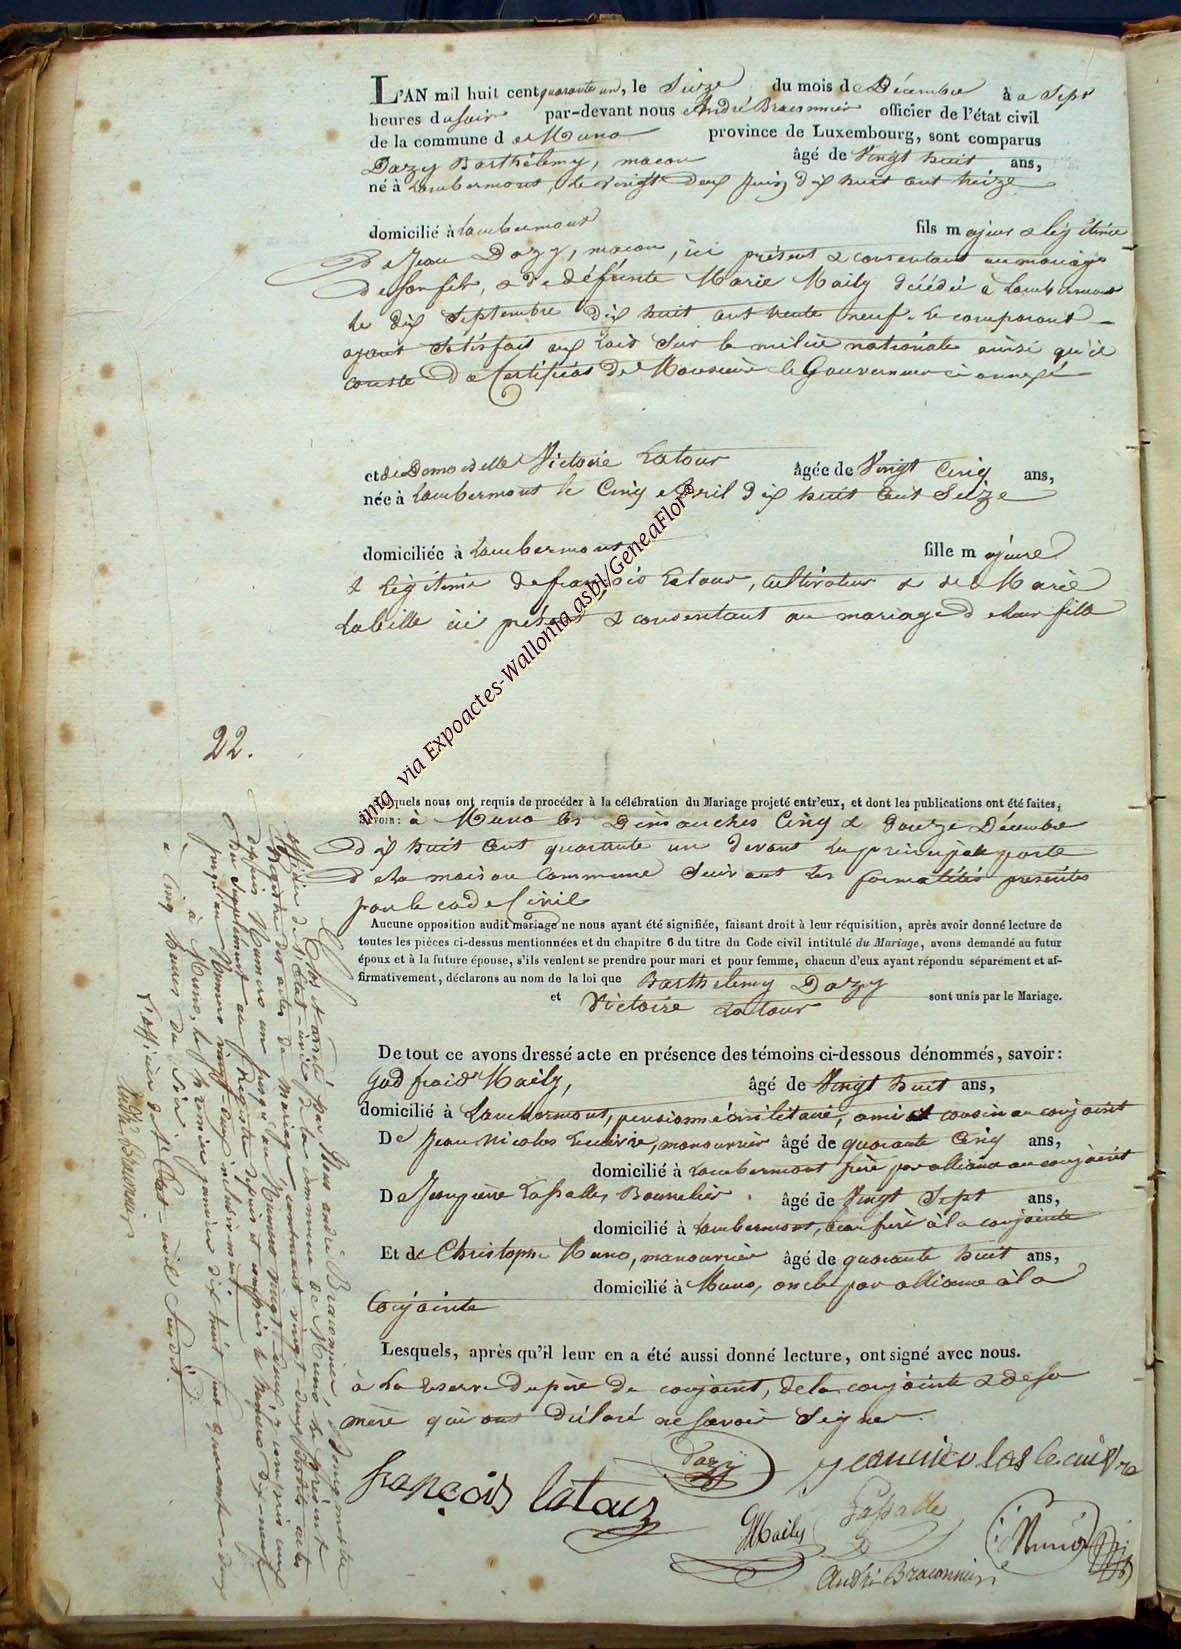 L'AN mil huit cent quarante un, le Seize du mois de Décembre à a Sept
heures du soir par-devant nous André Braconnier officier de l'état civil
de la commune d e Muno province de Luxembourg, sont comparus
Dazy Barthélemy, macon âgé de Vingt huit ans,
né à Lambermont le vingt deux Juin dix huit cent treize
domicilié à Lambermont fils m ajeur & légitime
de Jean Dazy, macon, ici présent & consentant au mariage
de son fils, & de défunte Marie Maily décédée à Lambermont
le dix Septembre dix huit cent trente neuf. le comparant
ayant satisfait aux lois sur la milice nationale ainsi qu'il
conste de Certificat de Monsieur le Gouverneur ci annexé
et de Demoiselle Victoire Latour âgée de Vingt Cinq ans,
née à Lambermont le Cinq Avril dix huit Cent Seize
domiciliée à Lambermont fille m ajeure
& légitime de françois Latour, Cultivateur & de Marie
Labille ici présent & consentant au mariage de leur fille
22.
Lesquels nous ont requis de procéder à la célébration du Mariage projeté entr'eux, et dont les publications ont été faites,
savoir : à Muno les Dimanches Cinq & Douze Décembre
dix huit Cent quarante un devant la principale porte
de la maison Commune Suivant les formalités
par le code Civil
Aucune opposition audit mariage ne nous ayant été signifiée, faisant droit à leur réquisition, après avoir donné lecture de
toutes les pièces ci-dessus mentionnées et du chapitre 6 du titre du Code civil intitulé du Mariage, avons demandé au futur
époux et à la future épouse, s'ils veulent se prendre pour mari et pour femme, chacun d'eux ayant répondu séparément et af-
firmativement, déclarons au nom de la loi que Barthelemy Dazy
et Victoire Latour sont unis par le Mariage.
De tout ce avons dressé acte en présence des témoins ci-dessous dénommés, savoir :
Godfroid Maily, âgé de Vingt huit ans,
domicilié à Lambermont, pensionné militaire, ami et cousin au conjoint
De Jean Nicolas Lecuivre, manouvrier âgé de quarante Cinq ans,
domicilié à Lambermont frère par alliance au conjoint
De Jean pierre Lassalle, Bourelier âgé de Vingt Sept ans,
domicilié à Lambermont, beau frère à la conjointe
Et de Christophe Muno, manouvrier âgé de quarante huit ans,
domicilié à Muno, oncle par alliance à la
Conjointe
Lesquels, après qu'il leur en a été aussi donné lecture, ont signé avec nous.
à la reserve du père du conjoint, de la conjointe & de sa
mère qui ont déclaré ne savoir signer.
Dazÿ
jeannicolas lecuivre
françois latour
GMaily
Lassalle
Muno
André Braconnier
Clos et arrêté par Nous André Braconnier, Bourgmestre
officier de l'Etat-civil de la commune de Muno le présent
Registre des actes de mariage, contenant vingt deux actes
depuis Numero un jusqu'au Numero vingt-deux, y compris ceux
du Supplément au Registre depuis et compris le Numero dix-neuf
jusqu'au Numero vingt-deux inclusivement.
à Muno, le premier janvier dix huit cent quarante-deux
à cinq heures du Soir.
L'officier de l'Etat-civil Susdit.
André Braconnier
img via Expoactes-Wallonia asbl/GeneaFlor©